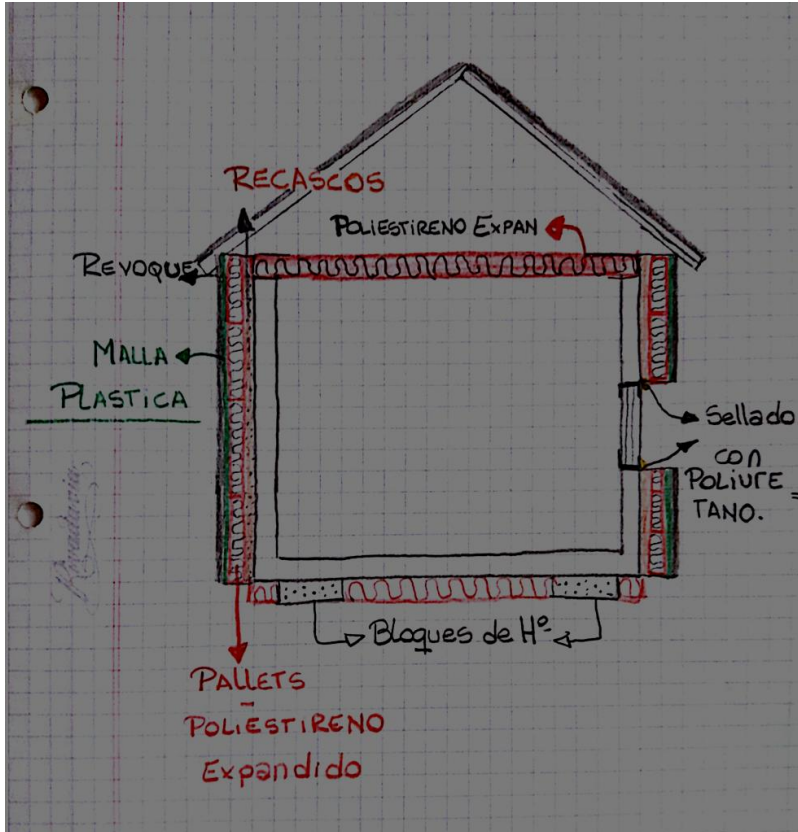 RECASCOS
POLIESTIRENO EXPAN
REVOQUE
MALLA
PLASTICA
Sellado
con
POLIURE =
TANO.
Bloques de Hº
PALLETS
-
POLIESTIRENO
Expandido
Rivadavia